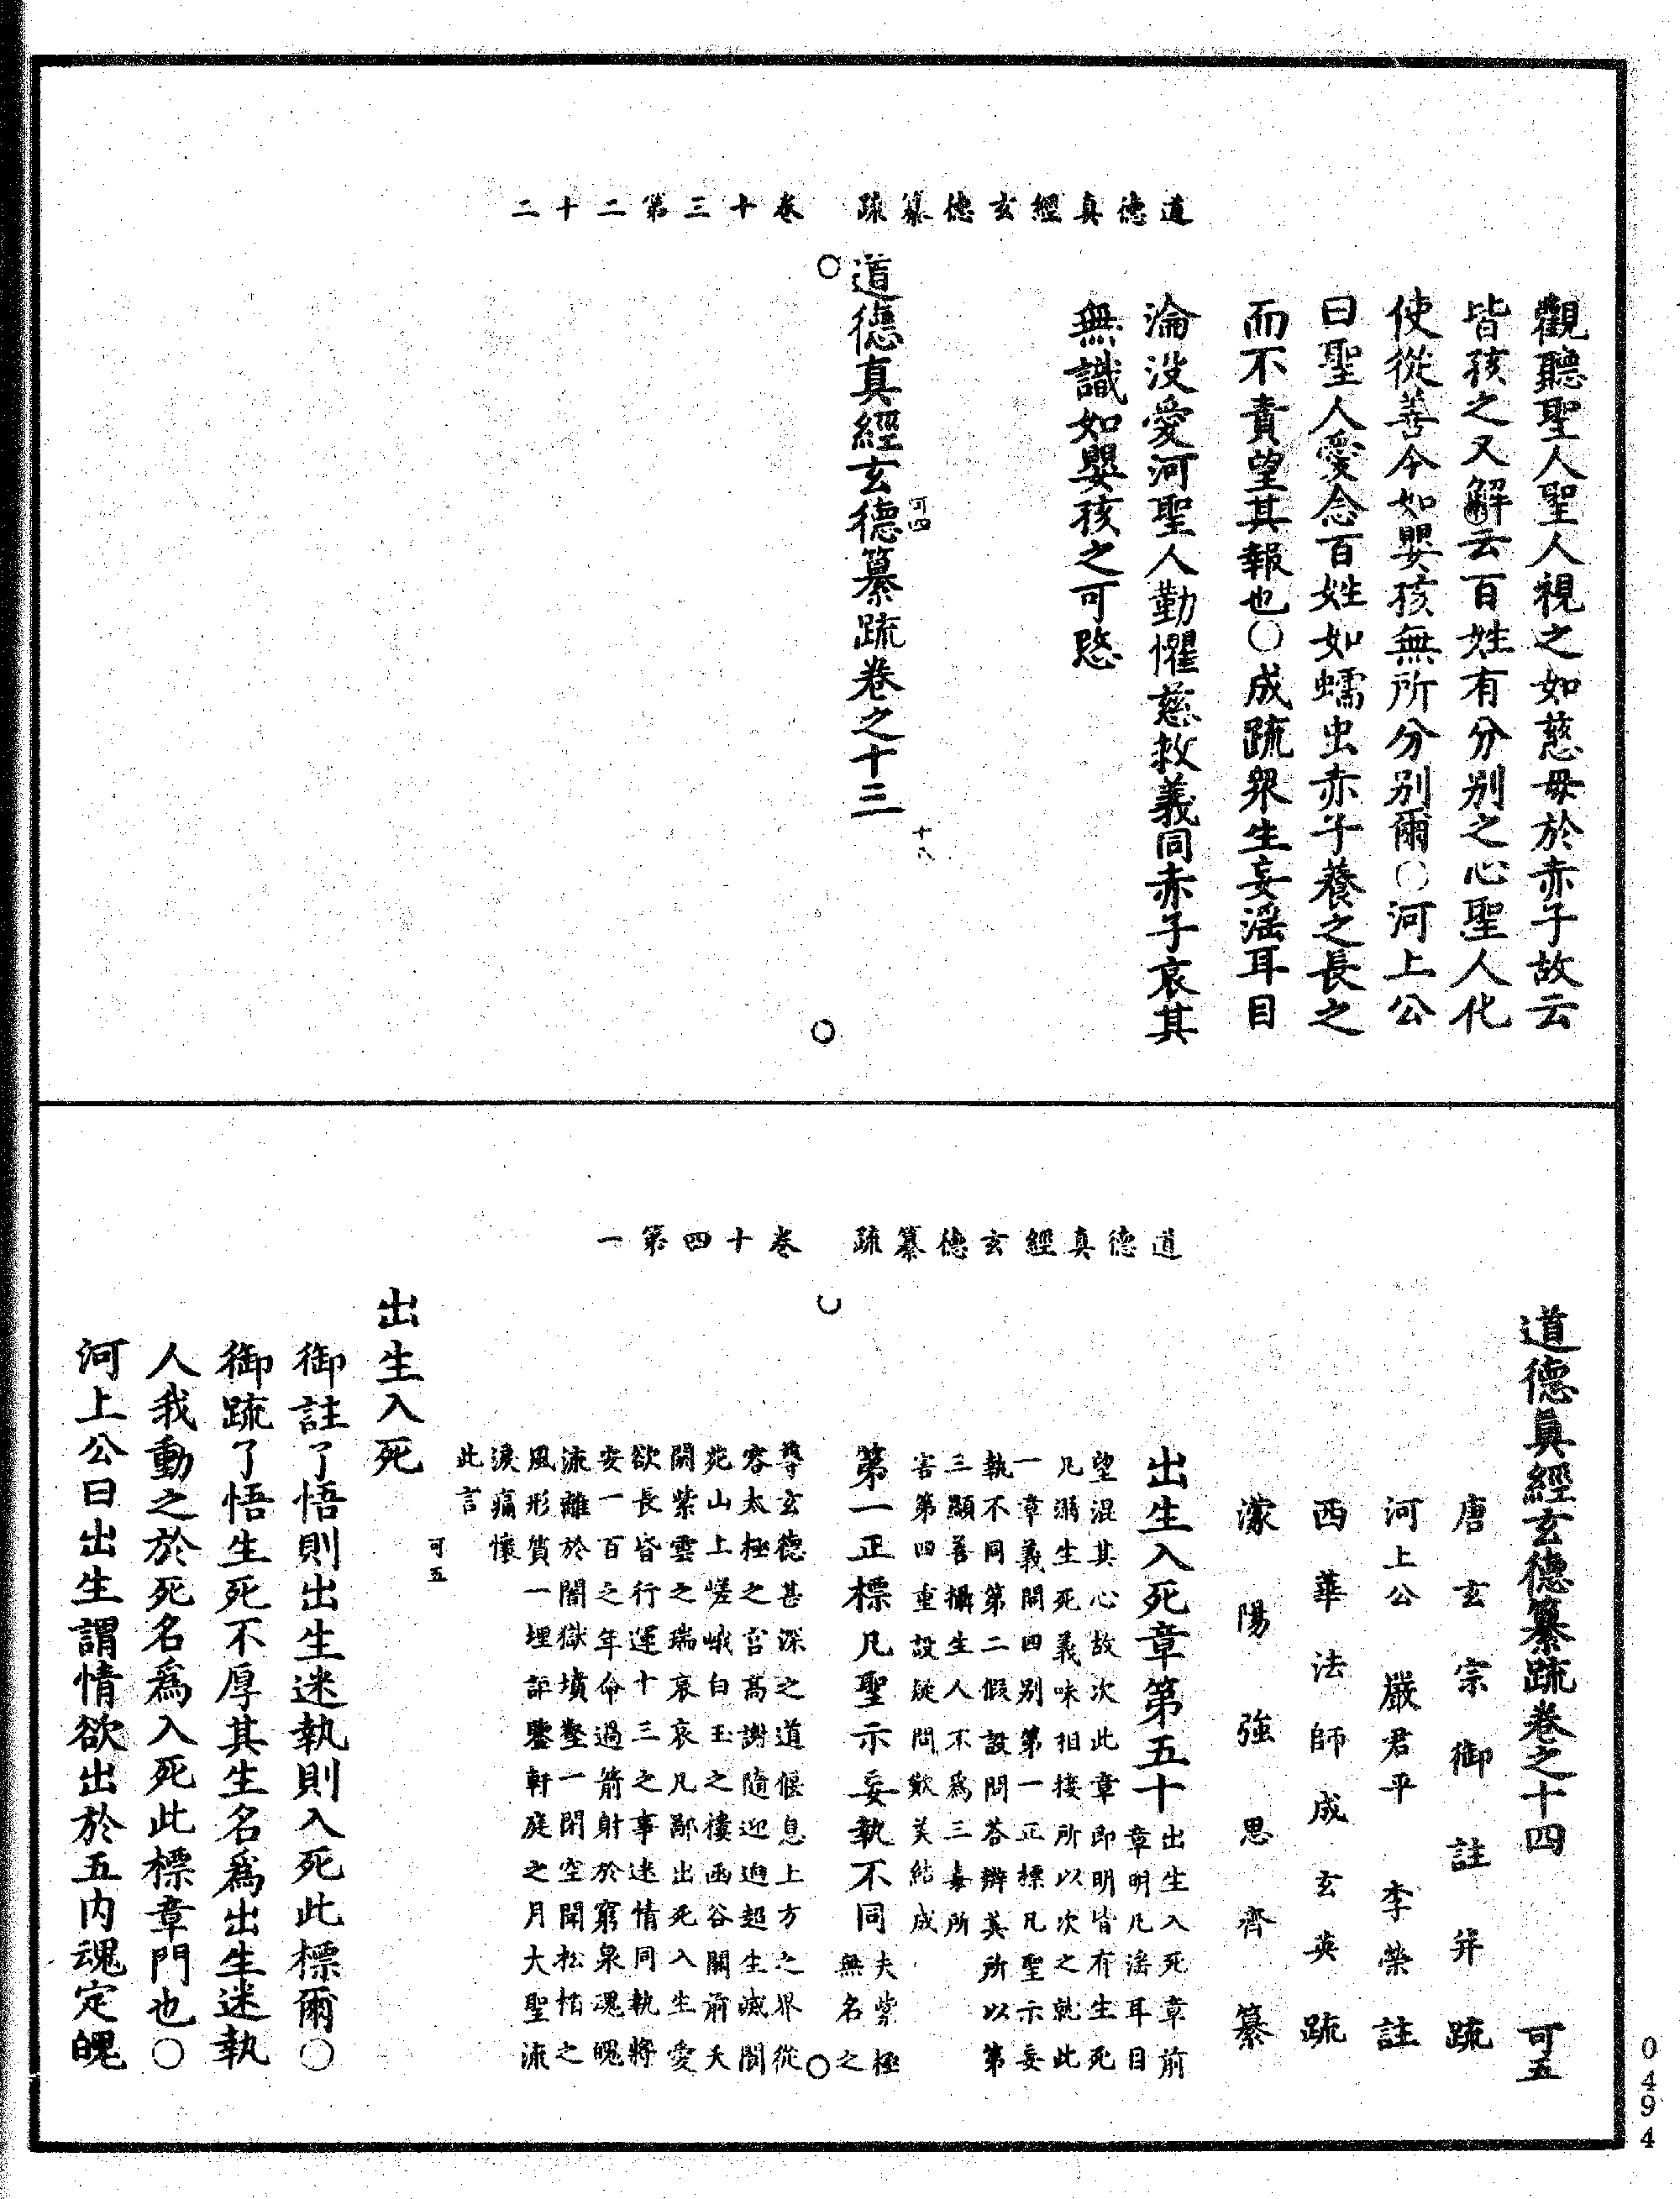 道德真經玄德纂疏　卷十三第二十二
觀聽聖人聖人視之如慈母於赤子故云
皆孩之又解云百姓有分別之心聖人化
使從善令如嬰孩無所分別爾○河上公
曰聖人愛念百姓如蠕虫赤子養之長之
而不責望其報也○成疏眾生妄滛耳目
淪沒愛河聖人勤懼慈救義同赤子哀其
無識如嬰孩之可愍
可四　十八
道德真經玄德纂疏卷之十三
道德真經玄德纂疏　卷十四第一
道德眞經玄德纂疏卷之十四　可五
唐玄宗御註并疏
河上公　嚴君平　李榮註
西華法師成玄英疏
濛陽強思齊纂
出生入死章第五十
出生入死章前
章明凡滛耳目
望混其心故次此章即明皆有生死
凡溺生死義味相接所以次之就此
一章義開四別第一正標凡聖示妄
執不同第二假設問荅辯其所以第
三顯善攝生人不為三毒所
害第四重設疑問歎美結成
第一正標凡聖示妄執不同
夫紫極
無名之
尊玄德甚深之道偃息上方之界從
容太極之宮高謝隨迎迥超生滅閬
苑山上嵯峨白玉之樓函谷關前夭
闕紫雲之瑞哀哀凡鄙出死入生愛
欲長皆行運十三之事迷情同執將
安一百之年命過箭射於窮泉魂魄
流離於闇獄墳壑一閉空開松栢之
風形質一埋詎鑒軒庭之月大聖流
淚痛懷
此言
可五
出生入死
御註了悟則出生迷執則入死此標爾○
御疏了悟生死不厚其生名爲出生迷執
人我動之於死名爲入死此標章門也○
河上公曰出生謂情欲出於五内魂定魄
0494